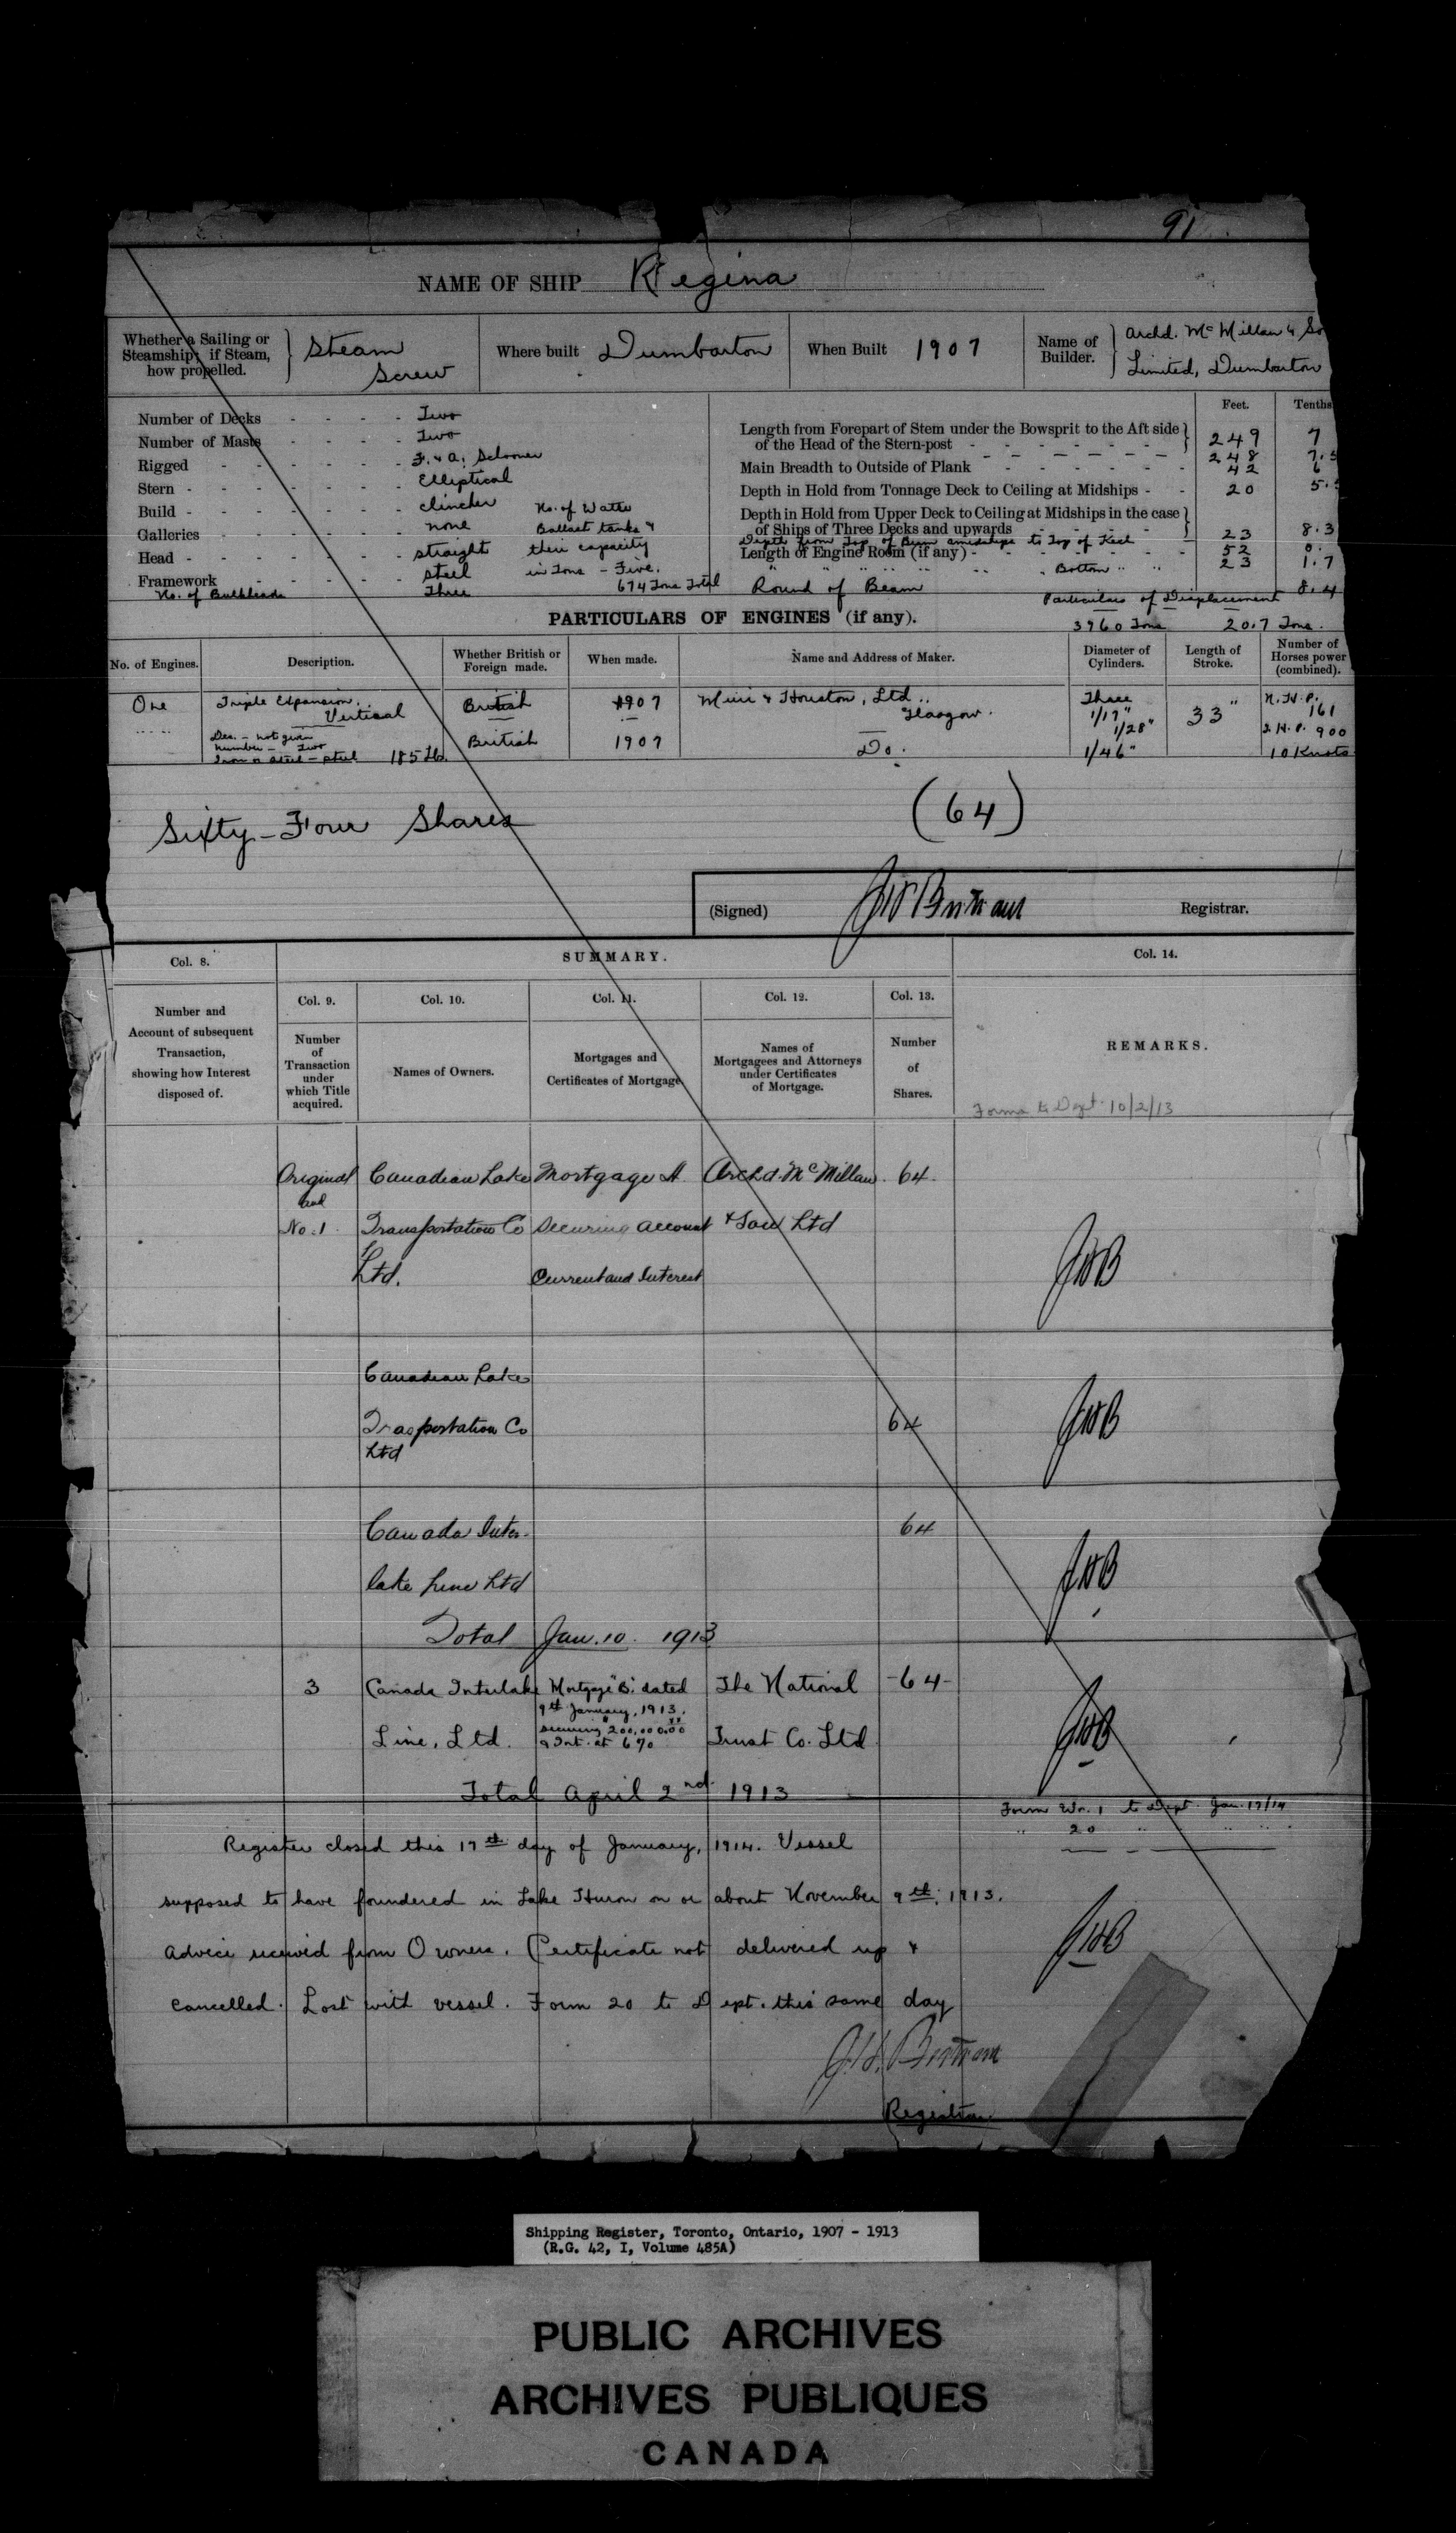 91
NAME OF SHIP Regina
Whether a Sailing or Steamship; if Steam, how propelled. Steam Screw
Where built Dumbarton
When Built 1907
Name of Builder. Archd. McMillan & So
Limited, Dumbarton
Feet. Tenths
Number of Decks - - - - Two
Number of Masts - - - - Two
Rigged - - - - - F. & A. Schooner
Stern - - - - - Elliptical
Build - - - - - Clincher
Galleries - - - - none
Head - - - - - straight
Framework - - - - steel
No. of Bulkheads Three
No. of Water
Ballast tanks &
their capacity
in Tons - Five.
674 Tons Total
Length from Forepart of Stem under the Bowsprit to the Aft side
of the Head of the Stern-post - - - - - - 249 7
248 7.5
Main Breadth to Outside of Plank - - - - - 42 6
Depth in Hold from Tonnage Deck to Ceiling at Midships - - 20 5.
Depth in Hold from Upper Deck to Ceiling at Midships in the case
of Ships of Three Decks and upwards - - - - 23 8.3
Depth from Top of Beam amidships to Top of Keel
Length of Engine Room (if any) - - - - - 52 0.
" " " " " " Bottom " " 23 1.7
Round of Beam 8.4
Particulars of Displacement
3960 Tons 20.7 Tons.
PARTICULARS OF ENGINES (if any).
No. of Engines. Description. Whether British or Foreign made. When made. Name and Address of Maker. Diameter of Cylinders. Length of Stroke. Number of Horses power (combined).
One Triple Expansion, British 1907 Muir & Houston, Ltd., Three 33" N.H.P.
Vertical Glasgow. 1/17" 161
1/28"
Des. - not given British 1907 Do. I.H.P. 900
Number - Two
Iron or Steel - steel 185 Lb. 1/46" 10 Knots
Sixty-Four Shares (64)
(Signed) J H Bertram Registrar.
Col. 8. SUMMARY. Col. 14.
Col. 9. Col. 10. Col. 11. Col. 12. Col. 13.
Number and
Account of subsequent
Transaction,
showing how Interest
disposed of.
Number
of
Transaction
under
which Title
acquired.
Names of Owners.
Mortgages and
Certificates of Mortgage
Names of
Mortgagees and Attorneys
under Certificates
of Mortgage.
Number
of
Shares.
REMARKS.
Forms to Dept. 10/2/13
Original Canadian Lake Mortgage A Archd. McMillan 64.
and
No. 1 Transportation Co Securing account & Son Ltd
Ltd. Current and Interest
JHB
Canadian Lake
Trasportation Co 64 JHB
Ltd
Canada Inter- 64
lake Line Ltd JHB
Total Jan. 10. 1913
3 Canada Interlake Mortgage "B" dated The National -64-
9th January, 1913.
Line, Ltd. securing $200,000.00 Trust Co. Ltd JHB
& Int. at 6%
Total April 2nd 1913
Form No. 1 to Dept. Jan. 17/14
" 20 " " " "
Register closed this 17th day of January, 1914. Vessel
supposed to have foundered in Lake Huron on or about November 9th, 1913.
Advice received from Owners. Certificate not delivered up &
cancelled. Lost with vessel. Form 20 to Dept. this same day
JHB
J.H. Bertram
Registrar.
Shipping Register, Toronto, Ontario, 1907 - 1913
(R.G. 42, I, Volume 485A)
PUBLIC ARCHIVES
ARCHIVES PUBLIQUES
CANADA